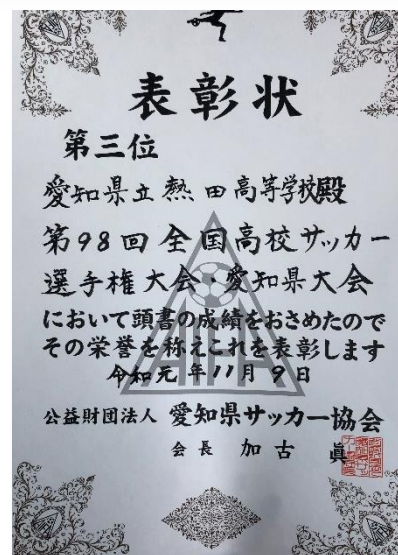 表彰状
第三位
愛知県立熱田高等学校殿
第98回全国高校サッカー
選手権大会・愛知県大会
において頭書の成績をおさめたので
その栄誉を称えこれを表彰します
令和元年11月9日
公益財団法人 愛知県サッカー協会
会長 加古眞
AIFA